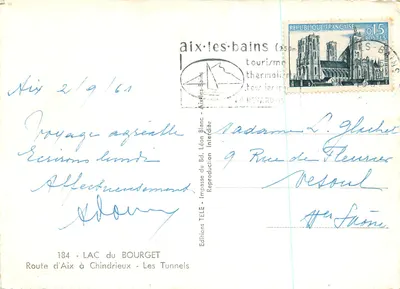 aix-les-bains
tourisme
REPUBLIQUE FRANÇAISE
0,15
Aix 2/9/61
Voyage agréable
Ecrirons lundi
Affectueusement
Madame L.
9 Rue de Fleurier
Vesoul
Hte Saône
Editions TELE - Impasse du Bd. Léon Blanc - Aix-les-Bains
Reproduction Interdite
184 - LAC du BOURGET
Route d'Aix à Chindrieux - Les Tunnels